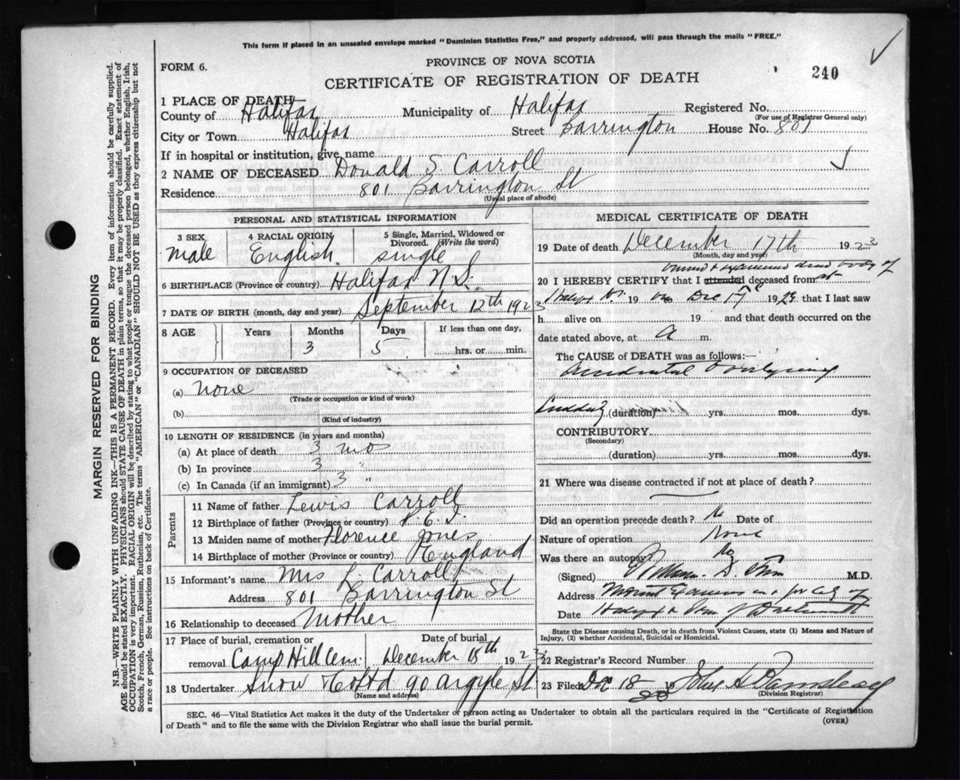 This form if placed in an unsealed envelope marked "Dominion Statistics Free," and properly addressed, will pass through the mails "FREE."
PROVINCE OF NOVA SCOTIA
FORM 6.
CERTIFICATE OF REGISTRATION OF DEATH
240
1 PLACE OF DEATH
County of Halifax Municipality of Halifax Registered No.
(For use of Registrar General only)
City or Town Halifax Street Barrington House No. 801
If in hospital or institution, give name
2 NAME OF DECEASED Donald S. Carroll
Residence 801 Barrington St
(Usual place of abode)
PERSONAL AND STATISTICAL INFORMATION
3 SEX 4 RACIAL ORIGIN 5 Single, Married, Widowed or Divorced. (Write the word)
male English single
6 BIRTHPLACE (Province or country) Halifax N.S.
7 DATE OF BIRTH (month, day and year) September 12th 1923
8 AGE Years Months Days If less than one day,
3 5 hrs. or min.
9 OCCUPATION OF DECEASED
(a) none
(Trade or occupation or kind of work)
(b)
(Kind of industry)
10 LENGTH OF RESIDENCE (in years and months)
(a) At place of death 3 mo
(b) In province 3 "
(c) In Canada (if an immigrant) 3 "
Parents
11 Name of father Lewis Carroll
12 Birthplace of father (Province or country) P.E.I.
13 Maiden name of mother Florence Jones
14 Birthplace of mother (Province or country) England
15 Informant's name Mrs L. Carroll
Address 801 Barrington St
16 Relationship to deceased Mother
17 Place of burial, cremation or removal Camp Hill Cem. Date of burial December 18th 1923
18 Undertaker Snow & Co Ltd 90 Argyle St
(Name and address)
MEDICAL CERTIFICATE OF DEATH
19 Date of death December 17th 1923
(Month, day and year)
viewed & examined dead body of
20 I HEREBY CERTIFY that I attended deceased from at
Dec 17 19 that I last saw
h alive on 19 and that death occurred on the
date stated above, at a m.
The CAUSE OF DEATH was as follows:—
Accidental Overlying
Sudden (duration) yrs. mos. dys.
CONTRIBUTORY
(Secondary)
(duration) yrs. mos. dys.
21 Where was disease contracted if not at place of death?
Did an operation precede death? No Date of
Nature of operation None
Was there an autopsy? No
(Signed) M.D.
Address
Date
State the Disease causing Death, or in death from Violent Causes, state (1) Means and Nature of Injury, (2) whether Accidental, Suicidal or Homicidal.
22 Registrar's Record Number
23 Filed Dec 18 19
(Division Registrar)
SEC. 46—Vital Statistics Act makes it the duty of the Undertaker or person acting as Undertaker to obtain all the particulars required in the "Certificate of Registration
of Death" and to file the same with the Division Registrar who shall issue the burial permit. (OVER)
MARGIN RESERVED FOR BINDING
N.B.—WRITE PLAINLY WITH UNFADING INK—THIS IS A PERMANENT RECORD. Every item of information should be carefully supplied.
AGE should be stated EXACTLY. PHYSICIANS should STATE CAUSE OF DEATH in plain terms, so that it may be properly classified. Exact statement of
OCCUPATION is very important. RACIAL ORIGIN will be described by stating to what people or league the deceased person belonged, whether English, Irish,
Scotch, French, German, Russian, Ruthenian, etc. The terms "AMERICAN" or "CANADIAN" SHOULD NOT BE USED as they express citizenship but not
a race or people. See instructions on back of Certificate.